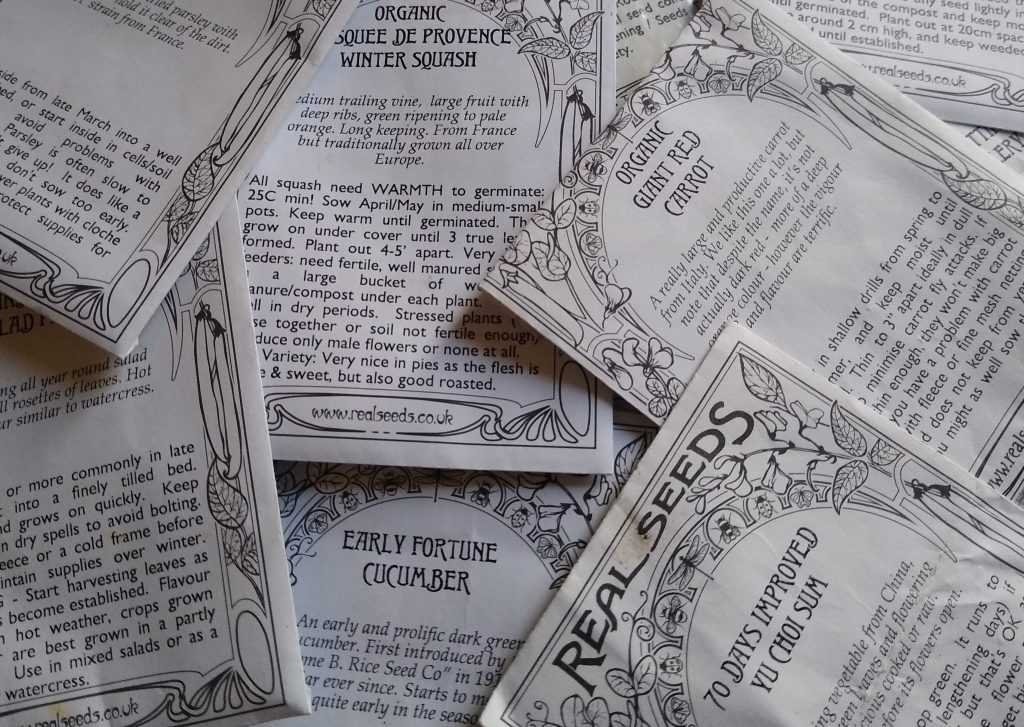 ied parsley with
hold it clear of the dirt.
strain from France.
side from late March into a well
ed, or start inside in cells/soil
avoid problems with
Parsley is often slow to
give up! It does like a
don't sow too early.
ver plants with cloche
otect supplies for
.uk
ORGANIC
SQUEE DE PROVENCE
WINTER SQUASH
edium trailing vine, large fruit with
deep ribs, green ripening to pale
orange. Long keeping. From France
but traditionally grown all over
Europe.
All squash need WARMTH to germinate:
25C min! Sow April/May in medium-small
pots. Keep warm until germinated. Th
grow on under cover until 3 true le
formed. Plant out 4-5' apart. Very
eeders: need fertile, well manured
a large bucket of w
anure/compost under each plant.
ll in dry periods. Stressed plants (
se together or soil not fertile enough,
duce only male flowers or none at all.
Variety: Very nice in pies as the flesh is
e & sweet, but also good roasted.
www.realseeds.co.uk
ORGANIC
GIANT RED
CARROT
A really large and productive carrot
from Italy. We like this one a lot, but
note that, despite the name, it's not
actually dark red - more of a deep
colour - however the vigour
and flavour are terrific.
in shallow drills from spring to
mer, and keep moist until
Thin to 3" apart ideally in dull
minimise carrot fly attacks. If
hin enough they won't make big
you have a problem with carrot
ith fleece or fine mesh netting
d does not keep from year
u might as well sow th
www.reals
any seed lightly in
of the compost and keep mo
til germinated. Plant out at 20cm spac
around 2 cm high, and keep weeded
until established.
.realseeds.co.uk
LAD
ing all year round salad
ll rosettes of leaves. Hot
ur similar to watercress.
or more commonly in late
t into a finely tilled bed.
nd grows on quickly. Keep
n dry spells to avoid bolting.
eece or a cold frame before
intain supplies over winter.
- Start harvesting leaves as
s become established. Flavour
n hot weather, crops grown
are best grown in a partly
Use in mixed salads or as a
watercress.
realseeds.co.uk
EARLY FORTUNE
CUCUMBER
An early and prolific dark green
ucumber. First introduced by
me B. Rice Seed Co" in 19
ar ever since. Starts to m
quite early in the seaso
REAL SEEDS
70 DAYS IMPROVED
YU CHOI SUM
vegetable from China,
leaves and flowering
ous cooked or raw.
re its flowers open.
green. It runs to
engthening days, if
but that's OK
flower